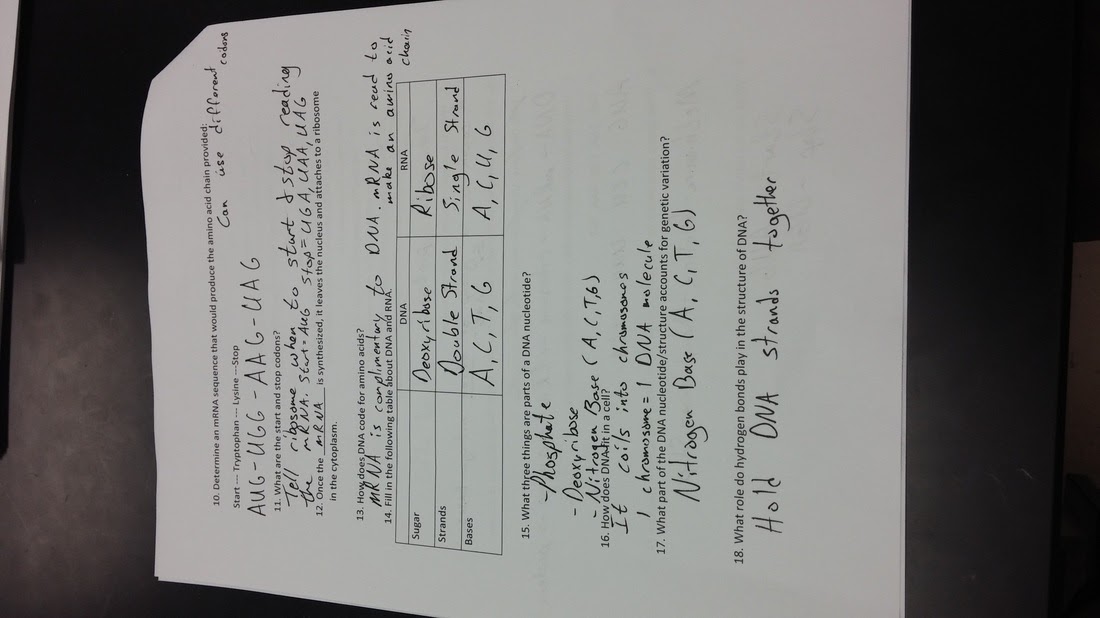 10. Determine an mRNA sequence that would produce the amino acid chain provided:
Start --- Tryptophan --- Lysine ---Stop
Can use different codons
AUG-UGG-AAG-UAG
11. What are the start and stop codons?
Tell ribosome when to start & stop reading
the mRNA. Start=AUG Stop=UGA, UAA, UAG
12. Once the mRNA is synthesized, it leaves the nucleus and attaches to a ribosome
in the cytoplasm.
13. How does DNA code for amino acids?
mRNA is complimentary to DNA. mRNA is read to
make an amino acid
chain
14. Fill in the following table about DNA and RNA.
DNA RNA
Sugar Deoxyribose Ribose
Strands Double Strand Single Strand
Bases A, C, T, G A, C, U, G
15. What three things are parts of a DNA nucleotide?
-Phosphate
-Deoxyribose
-Nitrogen Base (A, C, T, G)
16. How does DNA fit in a cell?
It coils into chromosomes
1 chromosome = 1 DNA molecule
17. What part of the DNA nucleotide/structure accounts for genetic variation?
Nitrogen Base (A, C, T, G)
18. What role do hydrogen bonds play in the structure of DNA?
Hold DNA strands together